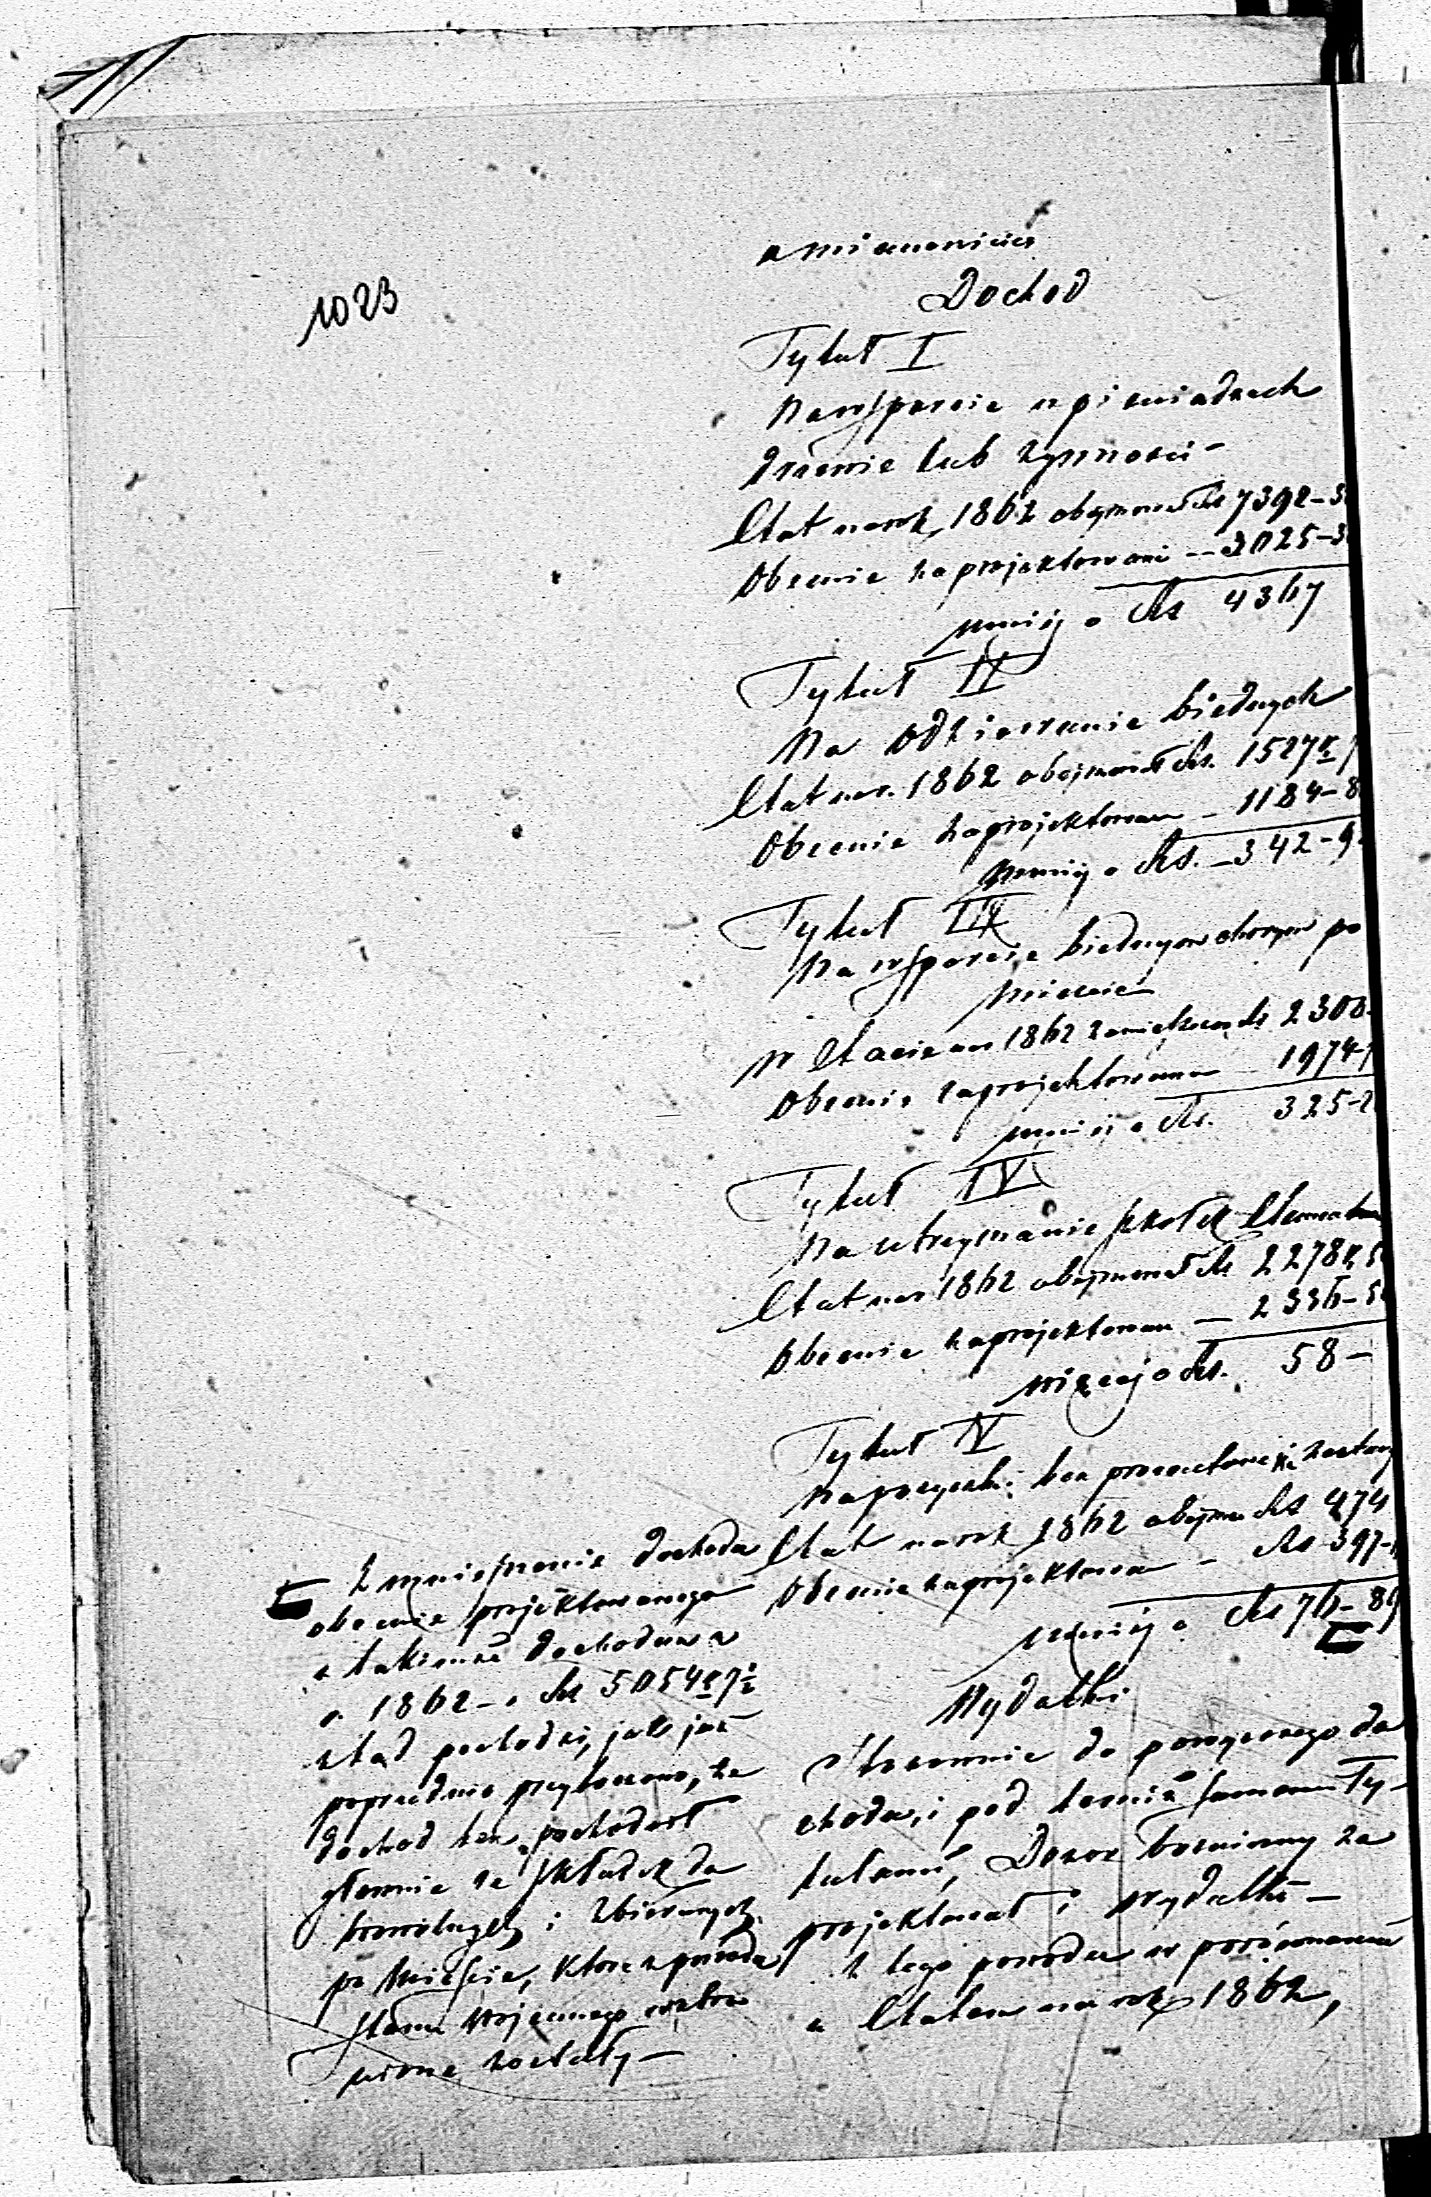 1023
a mianowicie
Dochod
Tytuł I
na wsparcie w pieniadzach
drzewie lub żywnosci -
Etat na rok 1862 obejmował Rs 7392-3
Obecnie zaprojektowano -- 3025-3
mniej o Rs 4367
Tytuł II
na odzianie biednych
Etat na r. 1862 obejmował Rs. 1527 k
Obecnie zaprojektowano - 1184-8
mniej o Rs. - 342-9
Tytuł III
na wsparcie biednym chorym po
miescie
w Etacie na 1862 zamieszczono Rs 2300-
Obecnie zaprojektowano - 1974-
mniej o Rs. 325-2
Tytuł IV
na utrzymanie szkółek Elementar
Etat na r 1862 obejmował Rs 2278 k 5
Obecnie zaprojektowano - 2336-5
więcej o Rs. 58-
Tytuł V
na pożyczki bez procentowe
Etat na rok 1862 obejmu Rs 474
Obecnie zaprojektowa - Rs 397-
mniej o Rs 76-89
Wydatki
Stosownie do powyższego do
chodu, i pod temiż samemi Ty-
tułami, Dozor bożniczny za
projektował i wydatki -
Z tego powodu w porównaniu
z Etatem na rok 1862,
Zmniejszenie dochodu
obecnie projektowanego
z takimże dochodem z
r. 1862 - o Rs 5054 k 7½
ztąd pochodzi, jak już
poprzednio przytoczono, że
dochod ten pochodził
głownie ze składek do
browolnych i zbieranych
po Mieście, które z powodu
stanu wojennego wzbro
nione zostały -